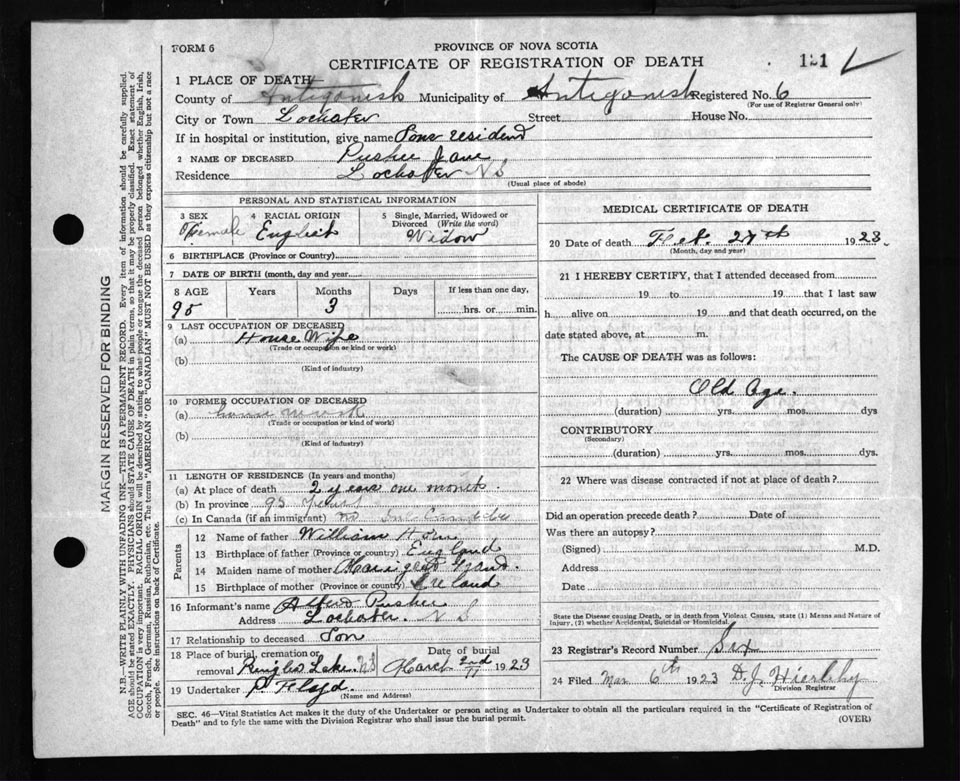 FORM 6
PROVINCE OF NOVA SCOTIA
CERTIFICATE OF REGISTRATION OF DEATH
121
1 PLACE OF DEATH
County of Antigonish Municipality of Antigonish Registered No. 6
(For use of Registrar General only)
City or Town Lochaber Street House No.
If in hospital or institution, give name resident
2 NAME OF DECEASED Pushee Jane
Residence Lochaber N S
(Usual place of abode)
PERSONAL AND STATISTICAL INFORMATION
3 SEX Female
4 RACIAL ORIGIN English
5 Single, Married, Widowed or Divorced (Write the word) Widow
6 BIRTHPLACE (Province or Country)
7 DATE OF BIRTH (month, day and year)
8 AGE Years Months Days If less than one day,
95 3 hrs. or min.
9 LAST OCCUPATION OF DECEASED
(a) House Wife
(Trade or occupation or kind of work)
(b)
(Kind of industry)
10 FORMER OCCUPATION OF DECEASED
(a) work
(Trade or occupation or kind of work)
(b)
(Kind of industry)
11 LENGTH OF RESIDENCE (In years and months)
(a) At place of death 2 years one month.
(b) In province 95 years
(c) In Canada (if an immigrant)
Parents
12 Name of father William
13 Birthplace of father (Province or country) England
14 Maiden name of mother
15 Birthplace of mother (Province or country) Ireland
16 Informant's name Alfred Pushee
Address Lochaber. N S
17 Relationship to deceased Son
18 Place of burial, cremation or removal Lake NS
Date of burial March 2nd 1923
19 Undertaker
(Name and Address)
MEDICAL CERTIFICATE OF DEATH
20 Date of death Feb. 27th 1923.
(Month, day and year)
21 I HEREBY CERTIFY, that I attended deceased from
19 to 19 that I last saw
h alive on 19 and that death occurred, on the
date stated above, at m.
The CAUSE OF DEATH was as follows:
Old Age.
(duration) yrs. mos. dys
CONTRIBUTORY
(Secondary)
(duration) yrs. mos. dys.
22 Where was disease contracted if not at place of death?
Did an operation precede death? Date of
Was there an autopsy?
(Signed) M.D.
Address
Date
State the Disease causing Death, or in death from Violent Causes, state (1) Means and Nature of
Injury, (2) whether Accidental, Suicidal or Homicidal.
23 Registrar's Record Number Six
24 Filed Mar 6th 1923 D.J. Hierlihy
Division Registrar
SEC. 46—Vital Statistics Act makes it the duty of the Undertaker or person acting as Undertaker to obtain all the particulars required in the "Certificate of Registration of
Death" and to fyle the same with the Division Registrar who shall issue the burial permit.
(OVER)
MARGIN RESERVED FOR BINDING
N.B.—WRITE PLAINLY WITH UNFADING INK—THIS IS A PERMANENT RECORD. Every item of information should be carefully supplied.
AGE should be stated EXACTLY. PHYSICIANS should STATE CAUSE OF DEATH in plain terms, so that it may be properly classified. Exact statement of
OCCUPATION is very important. RACIAL ORIGIN will be described by stating to what people or tongue the deceased person belonged whether English, Irish,
Scotch, French, German, Russian, Ruthenian, etc. The terms "AMERICAN" OR "CANADIAN" MUST NOT BE USED as they express citizenship but not a race
or people. See instructions on back of Certificate.